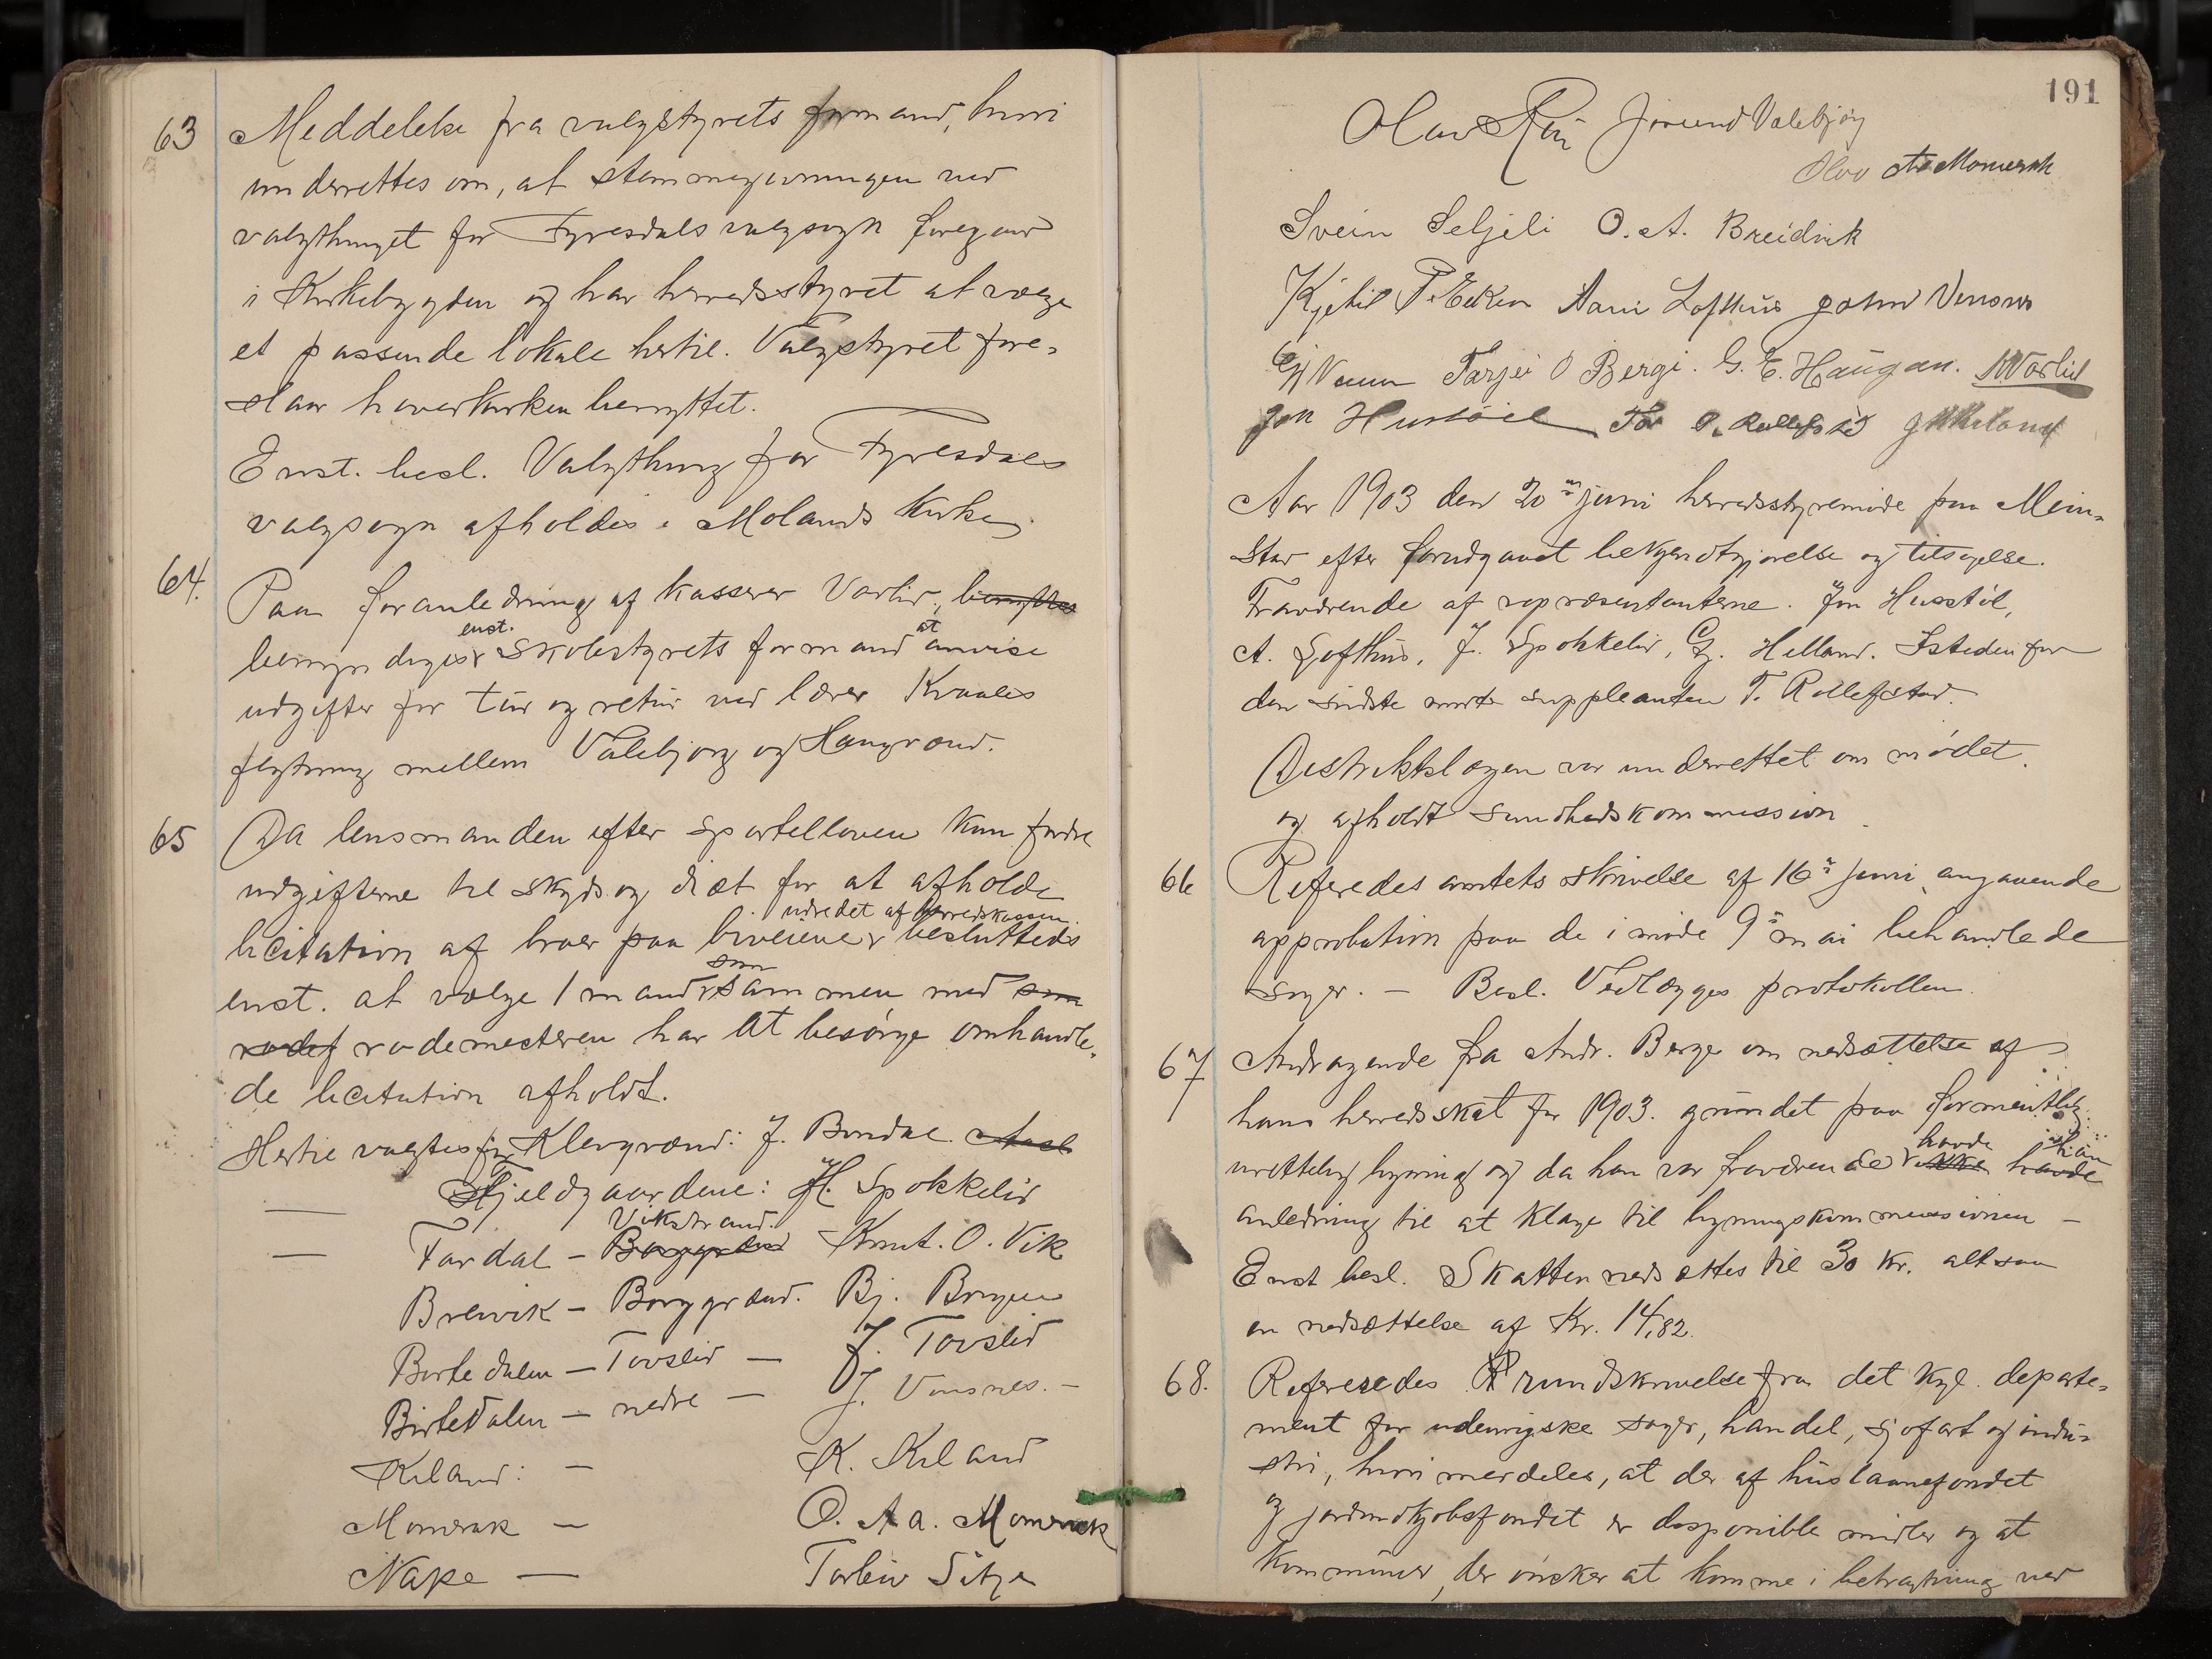 63 Meddelelse fra valgstyrets formand, hvori
underrettes om, at stemmegivningen ved
valgthinget for Fyresdals valgsogn foregaar
i Kirkebygden og har herredsstyret at vælge
et passende lokale hertil. Valgstyret fore-
slaar hovedkirken benyttet.
Enst. besl. Valgthing for Fyresdals
valgsogn afholdes i Molands Kirke
64. Paa foranledning af kasserer Vorlid,
bemyndiges enst. skolestyrets formand at anvise
udgifter for tur og retur ved lærer Kraales
flytning mellem Valebjørg og Haugrænd.
65 Da lensmanden efter sportelloven kun fordre
udgifterne til skyds og diæt for at afholde
udredet af herredskassen
licitation af broer paa biveiene besluttedes
enst. at vælge 1 mand som sammen med som
rodef rodemesteren har at besørge omhandle-
de licitation afholdt.
Hertil valgtes for Klevgrænd: J. Bondal
— Fjeldgaardene: H. Spokkelid
Vikstrand.
— Fardal – Borggrænd Knut. O. Vik
Breivik – Borggrænd. Bj. Borgen
Birtedalen – Tovslid — J. Tovslid
Birtedalen – nedre — J. Vonsnes. –
Kiland: – K. Kiland
Momrak — O. Aa. Momrak
Nape — Torleiv Sitje
191
Olav Jørund Valebjørg
Olav Aa Momrak
Svein Seljeli O. A. Breidvik
Kjetil T. Eeken Aani Lofthus John Vonsnes
Tarjei O Bergi. G. E. Haugan. Vorlid
Jon Hustøil Tor O. Rollefstad
Aar 1903 den 20de juni herredsstyremøde paa Mein-
stad efter forudgaaet bekjendtgjørelse og tilsigelse.
Fraværende af repræsentanterne. Jon Husstøl,
A. Lofthus, J. Spokkelid, G. Helland. Isteden for
den sidste mødte suppleanten T. Rollefstad.
Distriktslægen var underrettet om mødet.
og afholdt sundhedskommission
66 Referedes amtets skrivelse af 16de juni angaaende
approbation paa de i møde 9de mai behandlede
sager. – Besl. Vedlægges protokollen.
67 Andragende fra Andr. Berge om nedsættelse af
hans herredsskat for 1903. grundet paa formentlig
urettelig ligning og da han var fraværende ikke havde havde han
anledning til at klage til ligningskommissionen –
Enst besl. Skatten nedsættes til 30 kr. altsaa
en nedsættelse af Kr. 14,82.
68. Refereredes Rundskrivelse fra det kgl. departe-
ment for udenrigske sager, handel, sjøfart og indu-
stri, hvori meddeles, at der af huslaanefondet
og jordindkjøbsfondet er disponible midler og at
kommuner, der ønsker at komme i betragtning ved